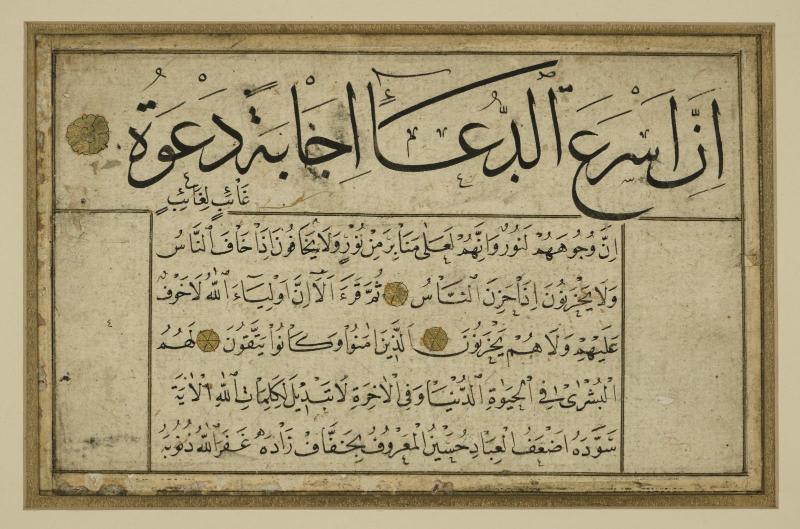 اِنَّ اَسْرَعَ الدُّعَآءِ اِجَابَةً دَعْوَةُ
غَائِبٍ لِغَائِبٍ
اِنَّ وُجُوهَهُمْ لَنُورٌ وَاِنَّهُمْ لَعَلٰى مَنَابِرَ مِنْ نُورٍ وَلَا يَخَافُونَ اِذَا خَافَ النَّاسُ
وَلَا يَحْزَنُونَ اِذَا حَزِنَ النَّاسُ ثُمَّ قَرَءَ اَلَآ اِنَّ اَوْلِيَآءَ اللّٰهِ لَا خَوْفٌ
عَلَيْهِمْ وَلَا هُمْ يَحْزَنُونَ اَلَّذِينَ اٰمَنُوا وَكَانُوا يَتَّقُونَ لَهُمُ
الْبُشْرٰى فِي الْحَيٰوةِ الدُّنْيَا وَفِي الْاٰخِرَةِ لَا تَبْدِيلَ لِكَلِمَاتِ اللّٰهِ الْاٰيَةَ
سَوَّدَهُ اَضْعَفُ الْعِبَادِ حُسَيْنُ الْمَعْرُوفُ بِخَفَّافْ زَادَه غَفَرَ اللّٰهُ ذُنُوبَهُ